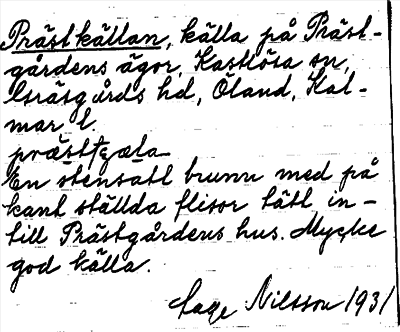 Prästkällan, källa på Präst-
gårdens ägor, Kastlösa sn,
Gräsgårds hd, Öland, Kal-
mar l.
præstꞔæla
En stensatt brunn med på
kant ställda flisor tätt in-
till Prästgårdens hus. Mycke
god källa.
Lage Nilsson 1931